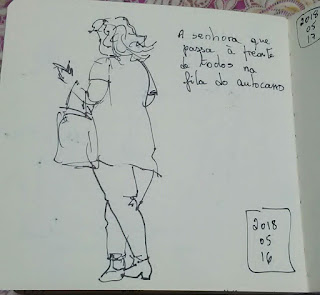 A senhora que
passa à frente
de todos na
fila do autocarro
2018
05
16
2018
05
17